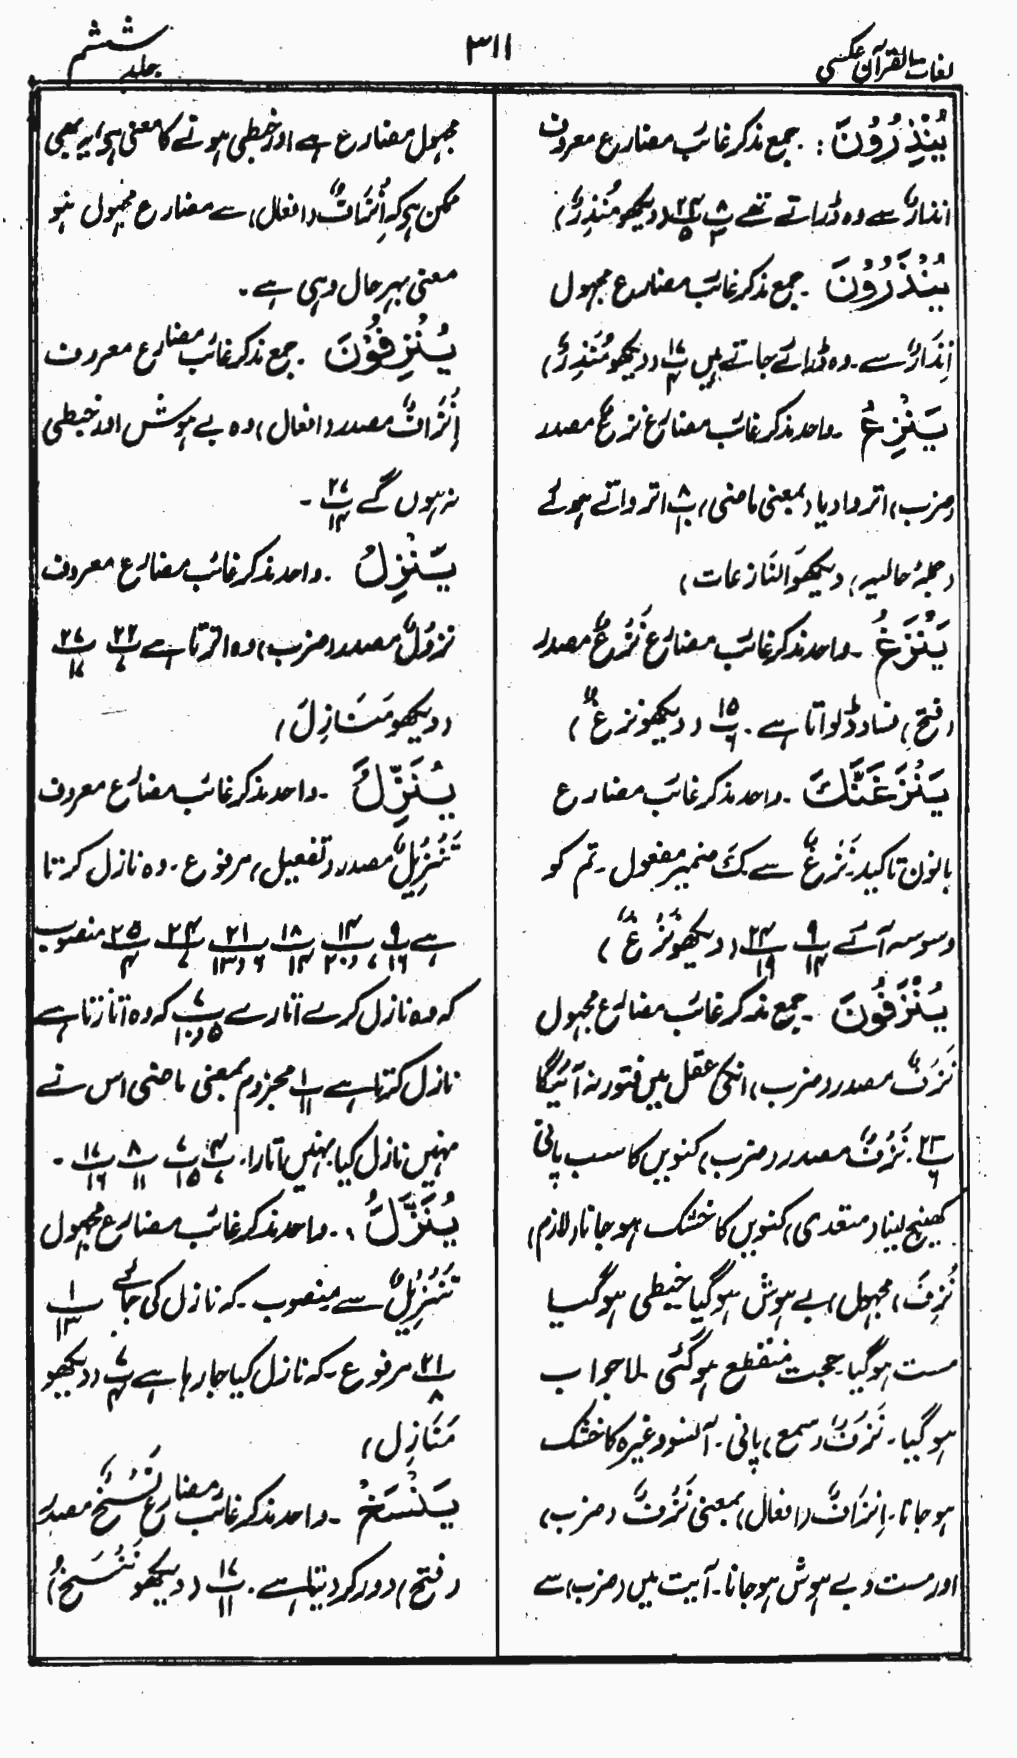 لغات القرآن عکسی
۳۱۱
جلد ششم
یُنْذِرُوْنَ : جمع مذکر غائب مضارع معروف
انذارٌ سے وہ ڈراتے تھے پ ۸/۲ پ ۲۴/۵ (دیکھو مُنْذِرٌ)
یُنْذَرُوْنَ ۔ جمع مذکر غائب مضارع مجہول
اِنْذَارٌ سے ۔ وہ ڈرائے جاتے ہیں پ ۱۷/۴ (دیکھو مُنْذِرٌ)
یَنْزِعُ ۔ واحد مذکر غائب مضارع نزعٌ مصدر
(ضرب) اتروا دیا (بمعنی ماضی) پ ۸/۱۰ اترواتے ہوئے
(جملۂ حالیہ) (دیکھو النَازعات)
یَنْزَغُ ۔ واحد مذکر غائب مضارع نَزْغٌ مصدر
(فتح) فساد ڈلواتا ہے ۔ پ ۱۵/۶ (دیکھو نزغٌ)
یَنْزَغَنَّكَ ۔ واحد مذکر غائب مضارع
بانون تاکید ۔ نَزْغٌ سے كَ ضمیر مفعول ۔ تم کو
وسوسہ آئے پ ۹/۱۴ پ ۲۴/۱۹ (دیکھو نَزْغٌ)
یُنْزَفُوْنَ ۔ جمع مذکر غائب مضارع مجہول
نَزْفٌ مصدر (ضرب) انکی عقل میں فتور نہ آئیگا
پ ۲۳/۶ ۔ نَزْفٌ مصدر (ضرب) کنویں کا سب پانی
کھینچ لینا (متعدی) کنویں کا خشک ہو جانا (لازم)
نُزِفَ (مجہول) بے ہوش ہو گیا خبطی ہو گیا
مست ہو گیا حجت منقطع ہو گئی لاجواب
ہو گیا ۔ نَزَفٌ (سمع) پانی ۔ آنسو وغیرہ کا خشک
ہو جانا ۔ اِنْزَافٌ (افعال) بمعنی نَزْفٌ (ضرب)
اور مست و بے ہوش ہو جانا ۔ آیت میں (ضرب) سے
مجہول مضارع ہے اور خبطی ہونے کا معنی ہی اور یہ بھی
ممکن ہی کہ اِنْزَافٌ (افعال) سے مضارع مجہول ہو
معنی بہر حال وہی ہے ۔
یُنْزِفُوْنَ ۔ جمع مذکر غائب مضارع معروف
اِنْزَافٌ مصدر (افعال) وہ بے ہوش اور خبطی
نہ ہوں گے پ ۲۷/۱۴ ۔
یَنْزِلُ ۔ واحد مذکر غائب مضارع معروف
نزولٌ مصدر (ضرب) وہ اترتا ہے پ ۲۲/۷ پ ۲۷/۱۷
(دیکھو مَنَازِلَ)
یُنَزِّلُ ۔ واحد مذکر غائب مضارع معروف
تَنْزِیْلٌ مصدر (تفعیل) مرفوع ۔ وہ نازل کرتا
ہے پ ۹/۱۶ پ ۱۴/۷ و ۲۰ پ ۱۸/۱۲ پ ۲۱/۶ و ۱۳ پ ۲۴/۷ پ ۲۵/۴ منصوب
کہ وہ نازل کرے اتارے پ ۷/۵ و ۱۰ کہ وہ اتارتا ہے
نازل کرتا ہے پ ۱/۱۱ مجزوم بمعنی ماضی اس نے
نہیں نازل کیا نہیں اتارا ۔ پ ۴/۷ پ ۷/۱۵ پ ۸/۱۱ پ ۱۷/۱۶ ۔
یُنَزَّلُ ۔ واحد مذکر غائب مضارع مجہول
تَنْزِیْلٌ سے منصوب ۔ کہ نازل کی جائے پ ۱/۱۳
پ ۲۱/۸ مرفوع ۔ کہ نازل کیا جا رہا ہے پ ۷/۴ (دیکھو
مَنَازِل)
یَنْسَخُ ۔ واحد مذکر غائب مضارع نَسْخٌ مصدر
(فتح) دور کر دیتا ہے ۔ پ ۱۷/۱۴ (دیکھو نَنْسَخُ)